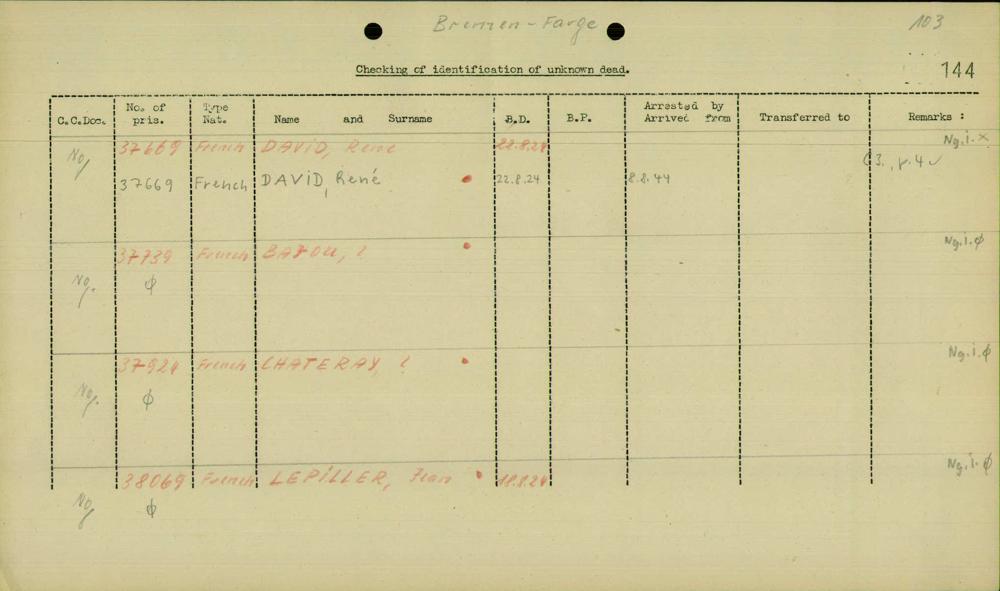 Bremen-Farge 103
Checking of identification of unknown dead. 144
C.C.Doc. No. of pris. Type Nat. Name and Surname B.D. B.P. Arrested by Arrived from Transferred to Remarks :
37669 French DAViD, René 22.8.24 Ng.i. x
Ng 37669 French DAViD, René 22.8.24 8.8.44
37739 French ?
Ng. i. ϕ
Ng. ϕ
37924 French CHATERAY, ?
Ng. i. ϕ
Ng. ϕ
38069 French LEPiLLER, Jean 18.8.24 Ng. i. ϕ
Ng ϕ